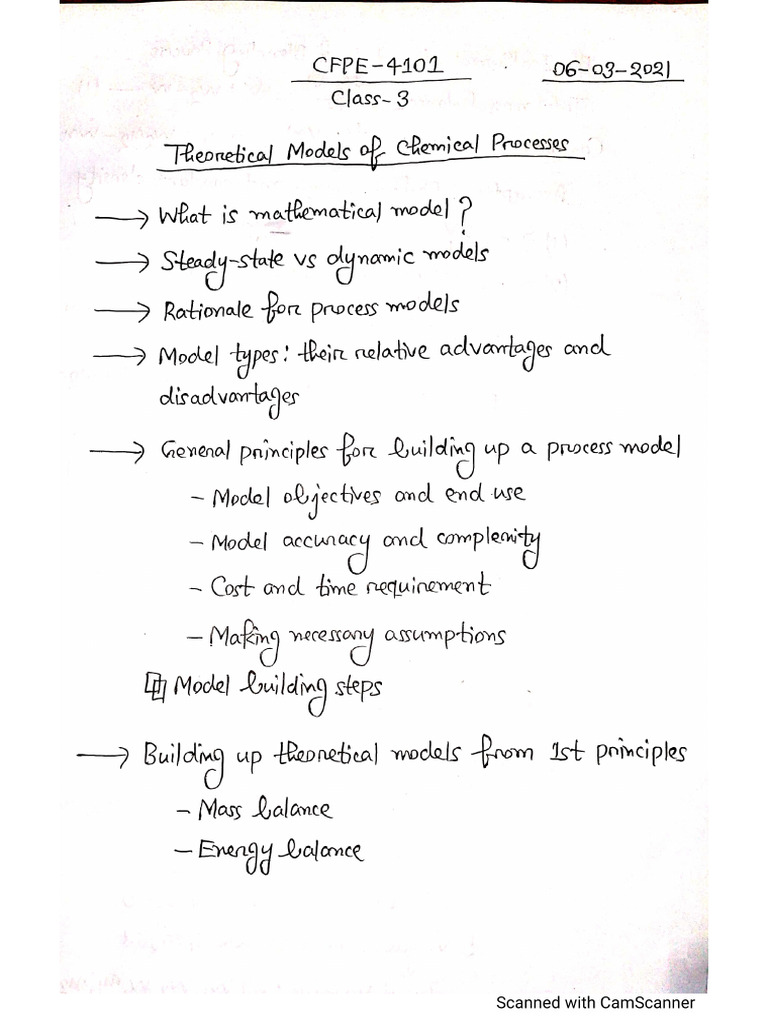 CFPE-4101 06-03-2021
Class-3
Theoretical Models of Chemical Processes
→ What is mathematical model?
→ Steady-state vs dynamic models
→ Rationale for process models
→ Model types: their relative advantages and
disadvantages
→ General principles for building up a process model
- Model objectives and end use
- Model accuracy and complexity
- Cost and time requirement
- Making necessary assumptions
Model building steps
→ Building up theoretical models from 1st principles
- Mass balance
- Energy balance
Scanned with CamScanner